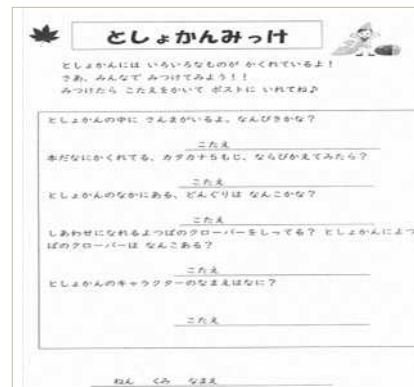 としょかんみっけ
としょかんには いろいろなものが かくれているよ！
さあ、みんなで みつけてみよう！！
みつけたら こたえをかいて ポストに いれてね♪
としょかんの中に さんまがいるよ、なんびきかな？
こたえ
本だなにかくれてる、カタカナ５もじ、ならびかえてみたら？
こたえ
としょかんのなかにある、どんぐりは なんこかな？
こたえ
しあわせになれるよつばのクローバーをしってる？ としょかんによつ
ばのクローバーは なんこある？
こたえ
としょかんのキャラクターのなまえはなに？
こたえ
ねん くみ なまえ